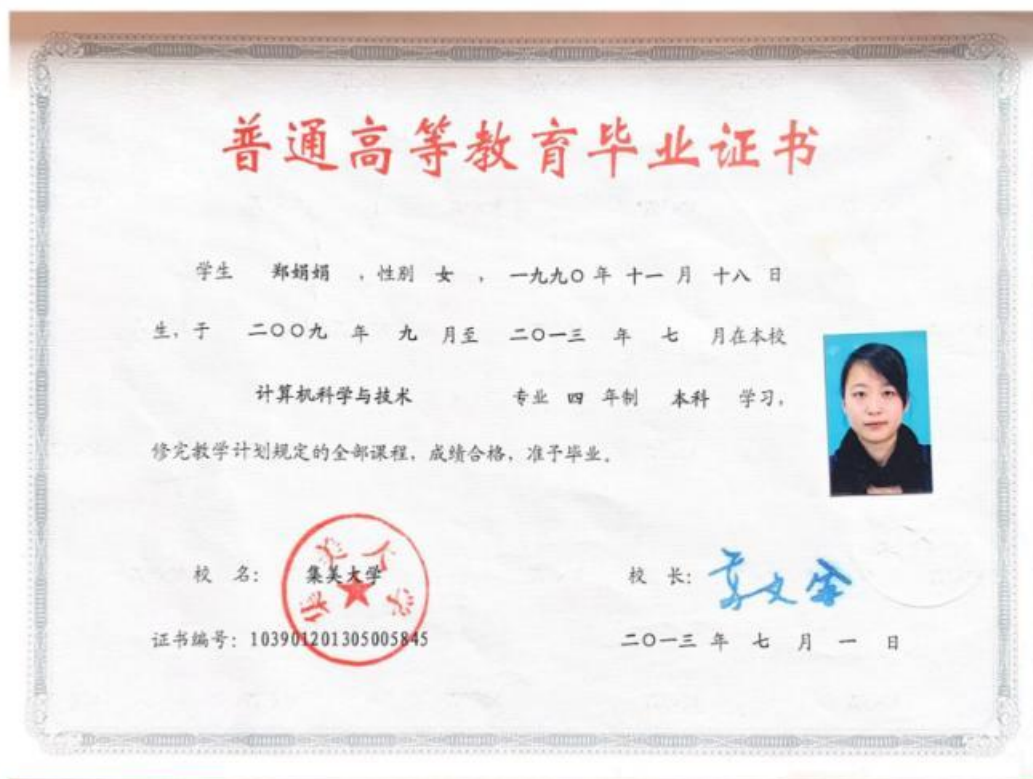 普通高等教育毕业证书
学生 郑娟娟 ，性别 女 ， 一九九〇 年 十一 月 十八 日
生，于 二〇〇九 年 九 月至 二〇一三 年 七 月在本校
计算机科学与技术 专业 四 年制 本科 学习，
修完教学计划规定的全部课程，成绩合格，准予毕业。
校 名： 集美大学
校 长：
证书编号：103901201305005845
二〇一三 年 七 月 一 日